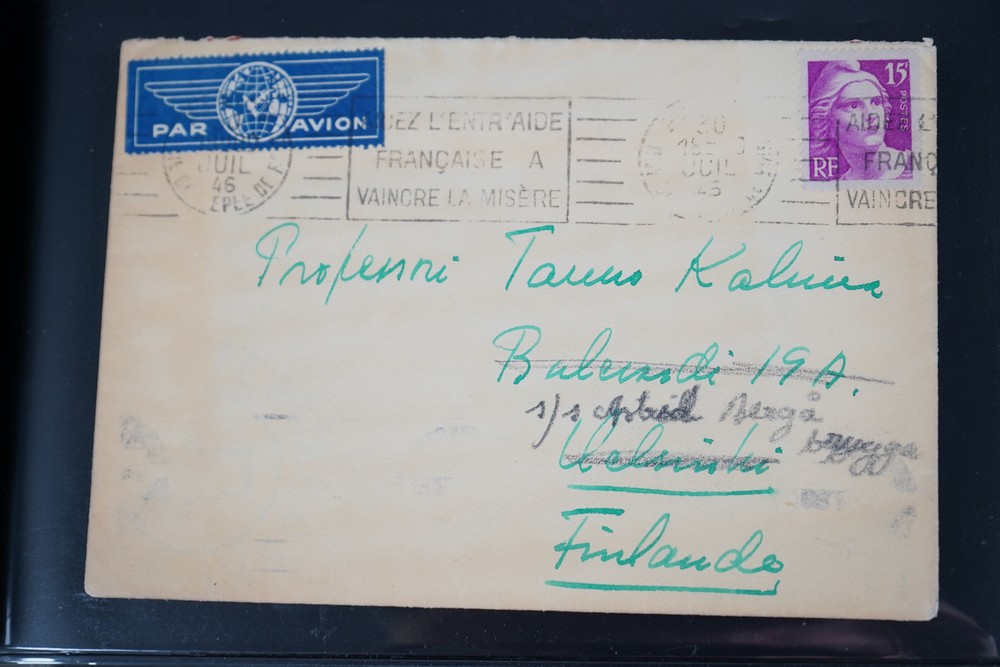 PAR AVION
15F
POSTES
RF
JUIL
46
EPLE DE
DEZ L'ENTR'AIDE
FRANÇAISE A
VAINCRE LA MISÈRE
30
JUIL
46
AIDEZ L'
FRANÇ
VAINCRE
Professori Tauno Kalima
19 A.
s/s
Helsinki
Finlande